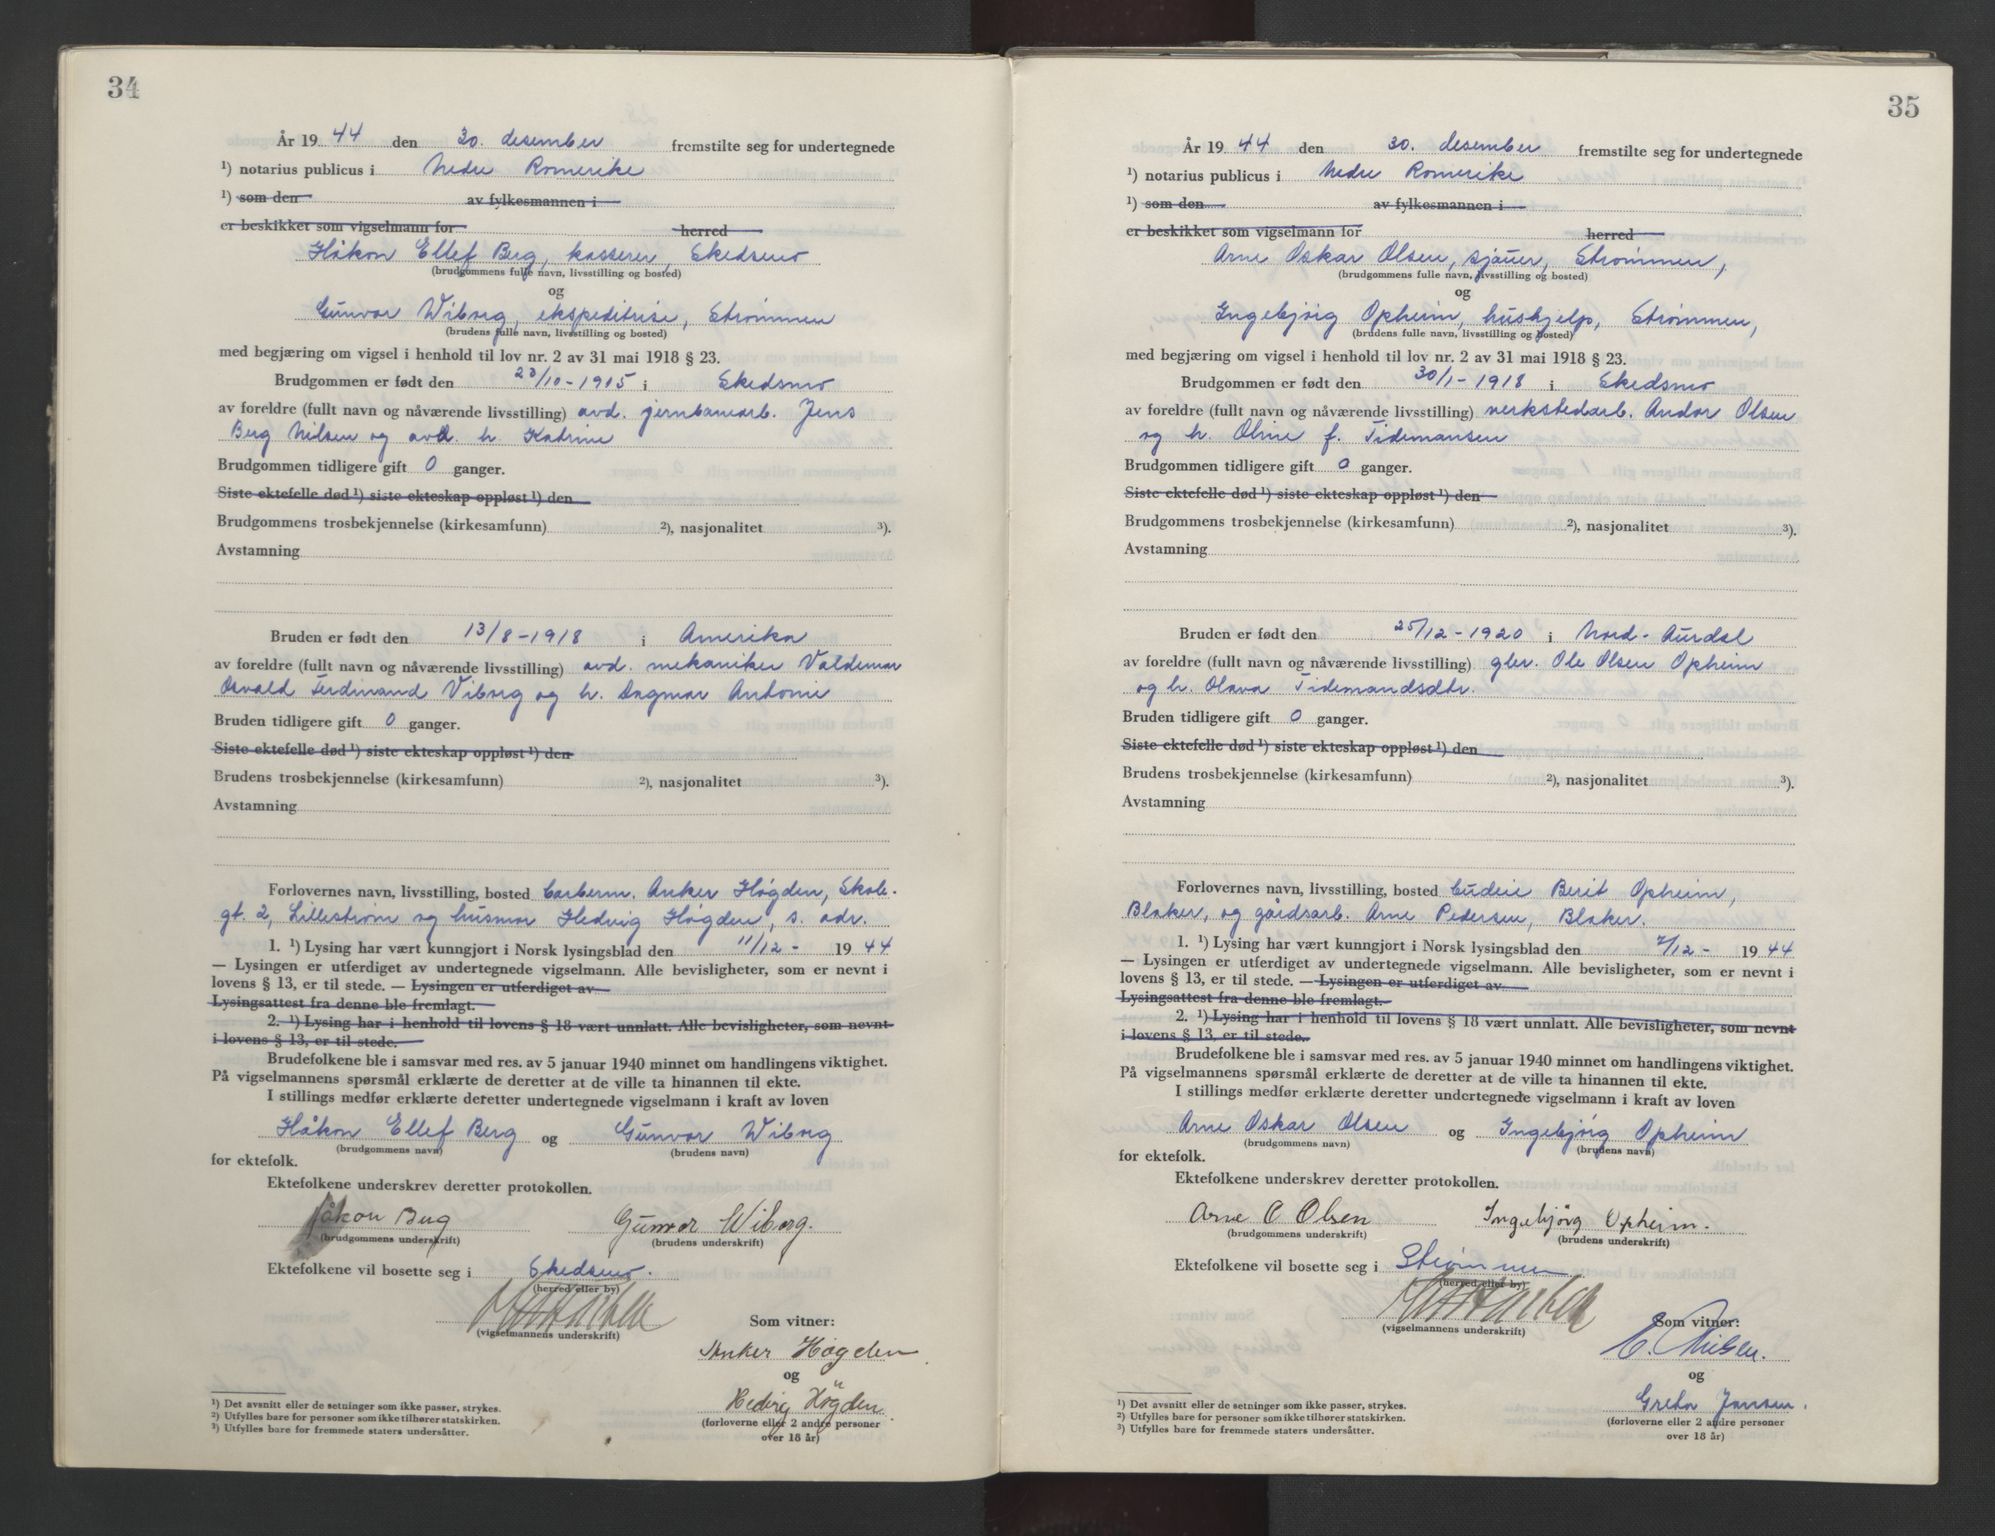 34
År 19 44 den 30. desember fremstilte seg for undertegnede
¹) notarius publicus i Nedre Romerike
¹) som den av fylkesmannen i
er beskikket som vigselmann for herred
Håkon Ellef Berg, kasserer, Skedsmo
(brudgommens fulle navn, livsstilling og bosted)
og
Gunvor Wiborg, ekspeditrise, Strømmen
(brudens fulle navn, livsstilling og bosted)
med begjæring om vigsel i henhold til lov nr. 2 av 31 mai 1918 § 23.
Brudgommen er født den 23/10-1905 i Skedsmo
av foreldre (fullt navn og nåværende livsstilling) avd. jernbanearb. Jens
Berg Nilsen og avd. h. Katrine
Brudgommen tidligere gift 0 ganger.
Siste ektefelle død ¹) siste ekteskap oppløst ¹) den
Brudgommens trosbekjennelse (kirkesamfunn) ²), nasjonalitet ³).
Avstamning
Bruden er født den 13/8-1918 i Amerika
av foreldre (fullt navn og nåværende livsstilling) avd. mekaniker Valdemar
Osvald Ferdinand Viborg og h. Dagmar Antonie
Bruden tidligere gift 0 ganger.
Siste ektefelle død ¹) siste ekteskap oppløst ¹) den
Brudens trosbekjennelse (kirkesamfunn) ²), nasjonalitet ³).
Avstamning
Forlovernes navn, livsstilling, bosted Anker Høgden, Skole-
gt. 2, Lillestrøm og husmor Hedvig Høgden, s. adr.
1. ¹) Lysing har vært kunngjort i Norsk lysingsblad den 11/12- 19 44
— Lysingen er utferdiget av undertegnede vigselmann. Alle bevisligheter, som er nevnt i
lovens § 13, er til stede. — Lysingen er utferdiget av
Lysingsattest fra denne ble fremlagt.
2. ¹) Lysing har i henhold til lovens § 18 vært unnlatt. Alle bevisligheter, som nevnt
i lovens § 13, er til stede.
Brudefolkene ble i samsvar med res. av 5 januar 1940 minnet om handlingens viktighet.
På vigselmannens spørsmål erklærte de deretter at de ville ta hinannen til ekte.
I stillings medfør erklærte deretter undertegnede vigselmann i kraft av loven
Håkon Ellef Berg og Gunvor Wiborg
(brudgommens navn) (brudens navn)
for ektefolk.
Ektefolkene underskrev deretter protokollen.
Håkon Berg Gunvor Wiborg.
(brudgommens underskrift) (brudens underskrift)
Ektefolkene vil bosette seg i Skedsmo.
(herred eller by)
(vigselmannens underskrift)
Som vitner:
Anker Høgden
og
Hedvig Högden
(forloverne eller 2 andre personer
over 18 år)
¹) Det avsnitt eller de setninger som ikke passer, strykes.
²) Utfylles bare for personer som ikke tilhører statskirken.
³) Utfylles bare for fremmede staters undersåtter.
35
År 19 44 den 30. desember fremstilte seg for undertegnede
¹) notarius publicus i Nedre Romerike
¹) som den av fylkesmannen i
er beskikket som vigselmann for herred
Arne Oskar Olsen, sjåuer, Strømmen,
(brudgommens fulle navn, livsstilling og bosted)
og
Ingebjørg Opheim, hushjelp, Strømmen,
(brudens fulle navn, livsstilling og bosted)
med begjæring om vigsel i henhold til lov nr. 2 av 31 mai 1918 § 23.
Brudgommen er født den 30/1-1918 i Skedsmo
av foreldre (fullt navn og nåværende livsstilling) verkstedarb. Andor Olsen
og h. Oline f. Tidemansen
Brudgommen tidligere gift 0 ganger.
Siste ektefelle død ¹) siste ekteskap oppløst ¹) den
Brudgommens trosbekjennelse (kirkesamfunn) ²), nasjonalitet ³).
Avstamning
Bruden er født den 25/12-1920 i Nord-Aurdal
av foreldre (fullt navn og nåværende livsstilling) gbr. Ole Olsen Opheim
og h. Olava Tidemandsdtr.
Bruden tidligere gift 0 ganger.
Siste ektefelle død ¹) siste ekteskap oppløst ¹) den
Brudens trosbekjennelse (kirkesamfunn) ²), nasjonalitet ³).
Avstamning
Forlovernes navn, livsstilling, bosted Berit Opheim,
Blaker, og gårdsarb. Arne Pedersen, Blaker.
1. ¹) Lysing har vært kunngjort i Norsk lysingsblad den 7/12- 19 44
— Lysingen er utferdiget av undertegnede vigselmann. Alle bevisligheter, som er nevnt i
lovens § 13, er til stede. — Lysingen er utferdiget av
Lysingsattest fra denne ble fremlagt.
2. ¹) Lysing har i henhold til lovens § 18 vært unnlatt. Alle bevisligheter, som nevnt
i lovens § 13, er til stede.
Brudefolkene ble i samsvar med res. av 5 januar 1940 minnet om handlingens viktighet.
På vigselmannens spørsmål erklærte de deretter at de ville ta hinannen til ekte.
I stillings medfør erklærte deretter undertegnede vigselmann i kraft av loven
Arne Oskar Olsen og Ingebjørg Opheim
(brudgommens navn) (brudens navn)
for ektefolk.
Ektefolkene underskrev deretter protokollen.
Arne O Olsen Ingebjørg Opheim.
(brudgommens underskrift) (brudens underskrift)
Ektefolkene vil bosette seg i Strømmen
(herred eller by)
(vigselmannens underskrift)
Som vitner:
E. Nilsen.
og
Grethe Jansen.
(forloverne eller 2 andre personer
over 18 år)
¹) Det avsnitt eller de setninger som ikke passer, strykes.
²) Utfylles bare for personer som ikke tilhører statskirken.
³) Utfylles bare for fremmede staters undersåtter.